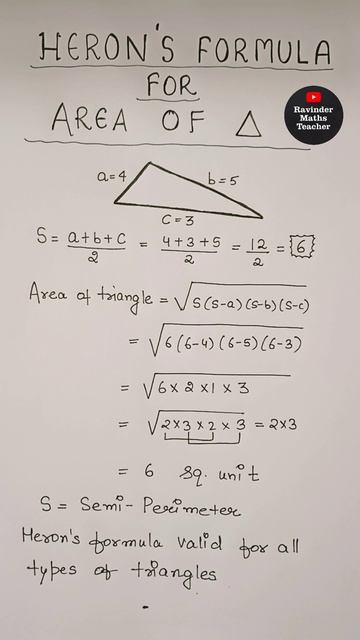 HERON'S FORMULA
FOR
AREA OF △
Ravinder
Maths
Teacher
a=4
b=5
C=3
S = a+b+c/2 = 4+3+5/2 = 12/2 = 6
Area of triangle = √S(S-a)(S-b)(S-c)
= √6(6-4)(6-5)(6-3)
= √6×2×1×3
= √2×3×2×3 = 2×3
= 6 sq. unit
S = Semi-Perimeter
Heron's formula valid for all
types of triangles